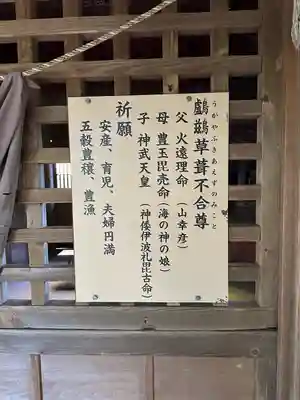 鸕鶿草葺不合尊
うがやふきあえずのみこと
父 火遠理命(山幸彦)
母 豊玉毘売命(海の神の娘)
子 神武天皇(神倭伊波礼毘古命)
祈願
安産、育児、夫婦円満
五穀豊穣、豊漁